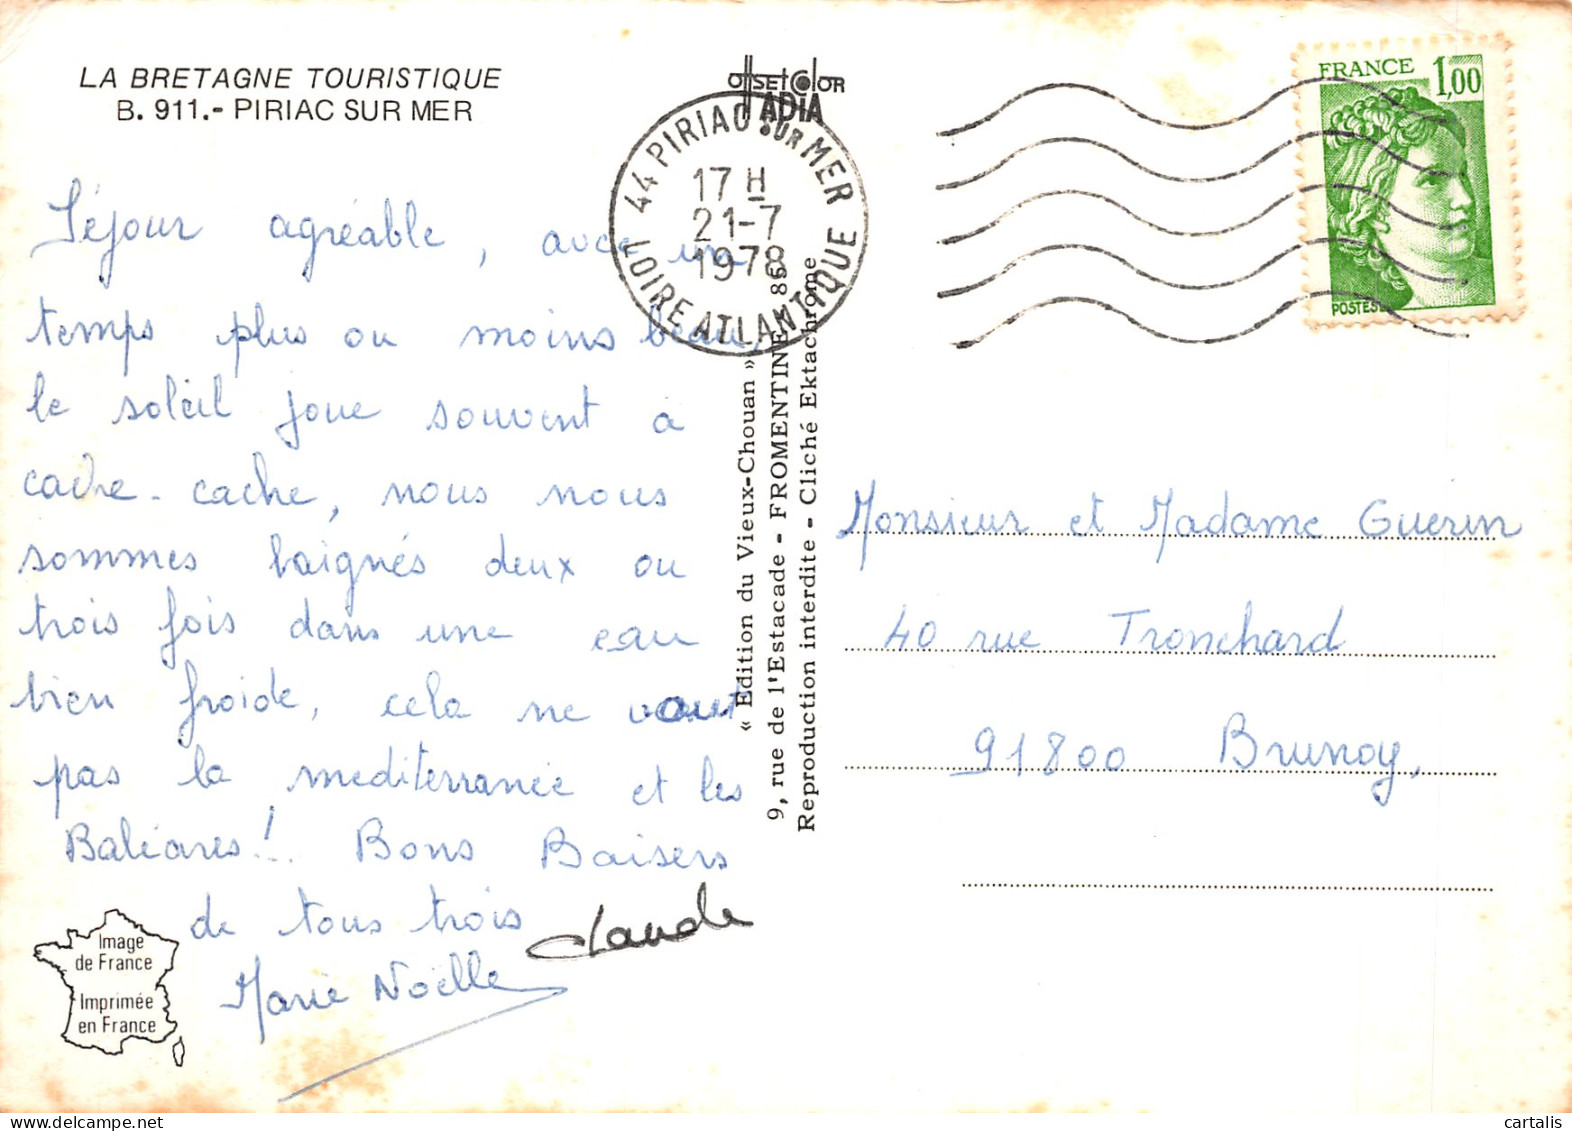 LA BRETAGNE TOURISTIQUE
B. 911.- PIRIAC SUR MER
Séjour agréable, avec un
temps plus ou moins beau,
le soleil joue souvent à
cache-cache, nous nous
sommes baignés deux ou
trois fois dans une eau
bien froide, cela ne vaut
pas la mediterranée et les
Baléares!.. Bons Baisers
de tous trois
Claude
Marie Noëlle
Image
de France
Imprimée
en France
offset color
ADIA
44 PIRIAC SUR MER
17 H
21-7
1978
LOIRE ATLANTIQUE
« Edition du Vieux-Chouan »
9, rue de l'Estacade - FROMENTINE 85
Reproduction interdite - Cliché Ektachrome
FRANCE 1,00
POSTES
Monsieur et Madame Guerin
40 rue Tronchard
91800 Brunoy,
cartalis